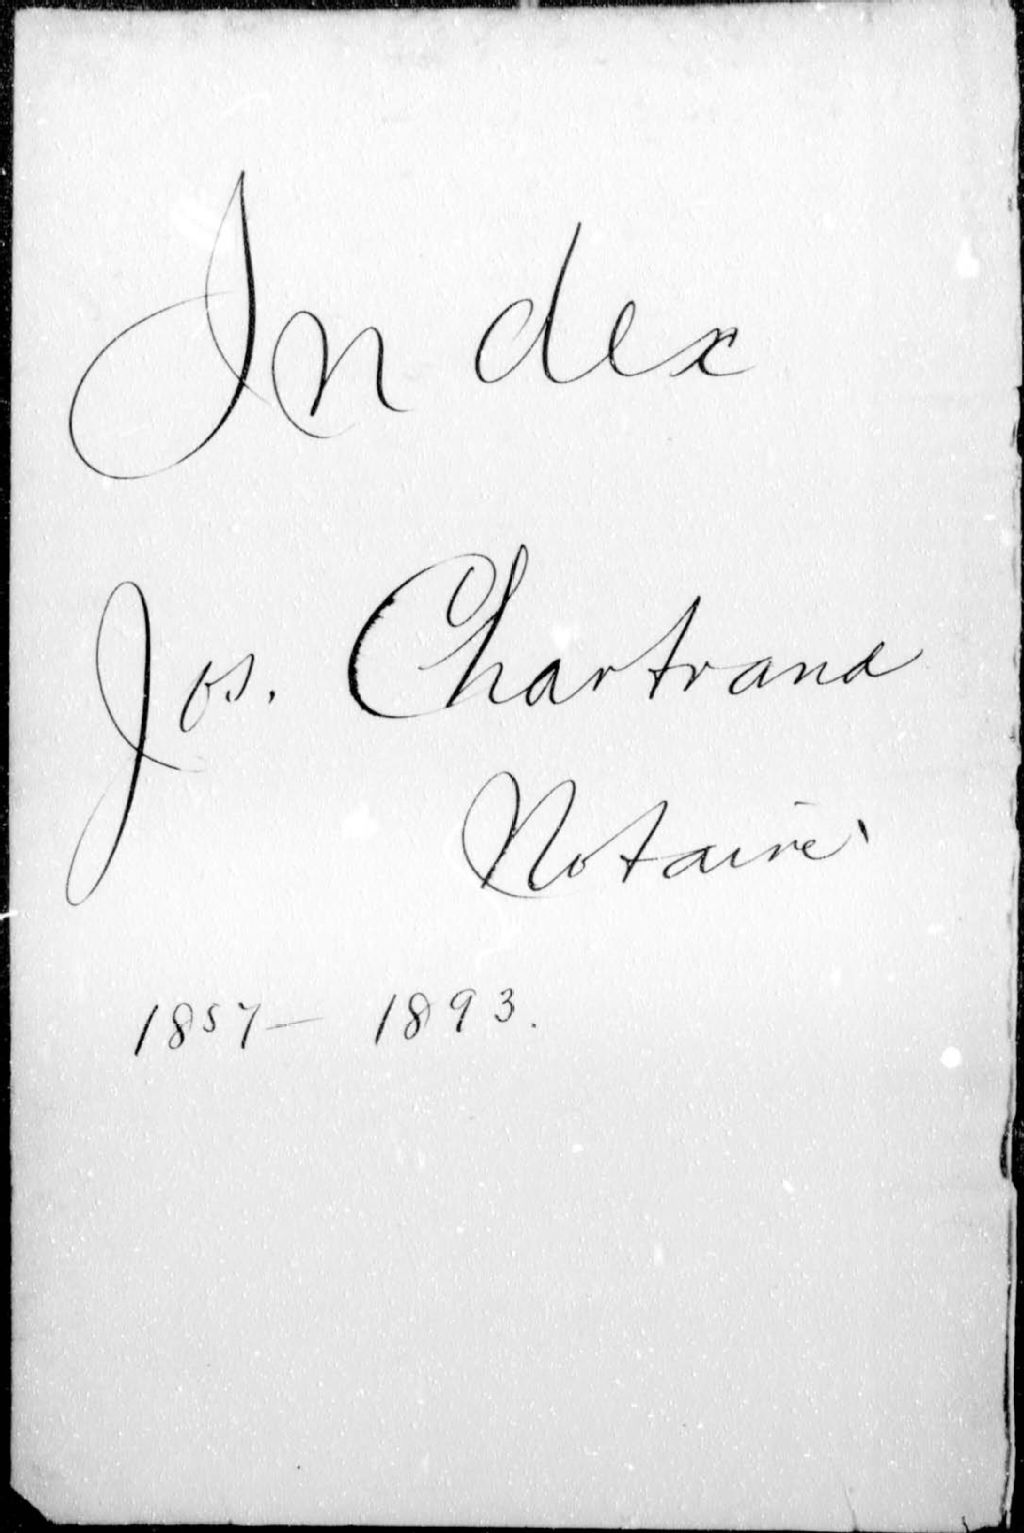 Index
Jos. Chartrand
Notaire
1857 - 1893.